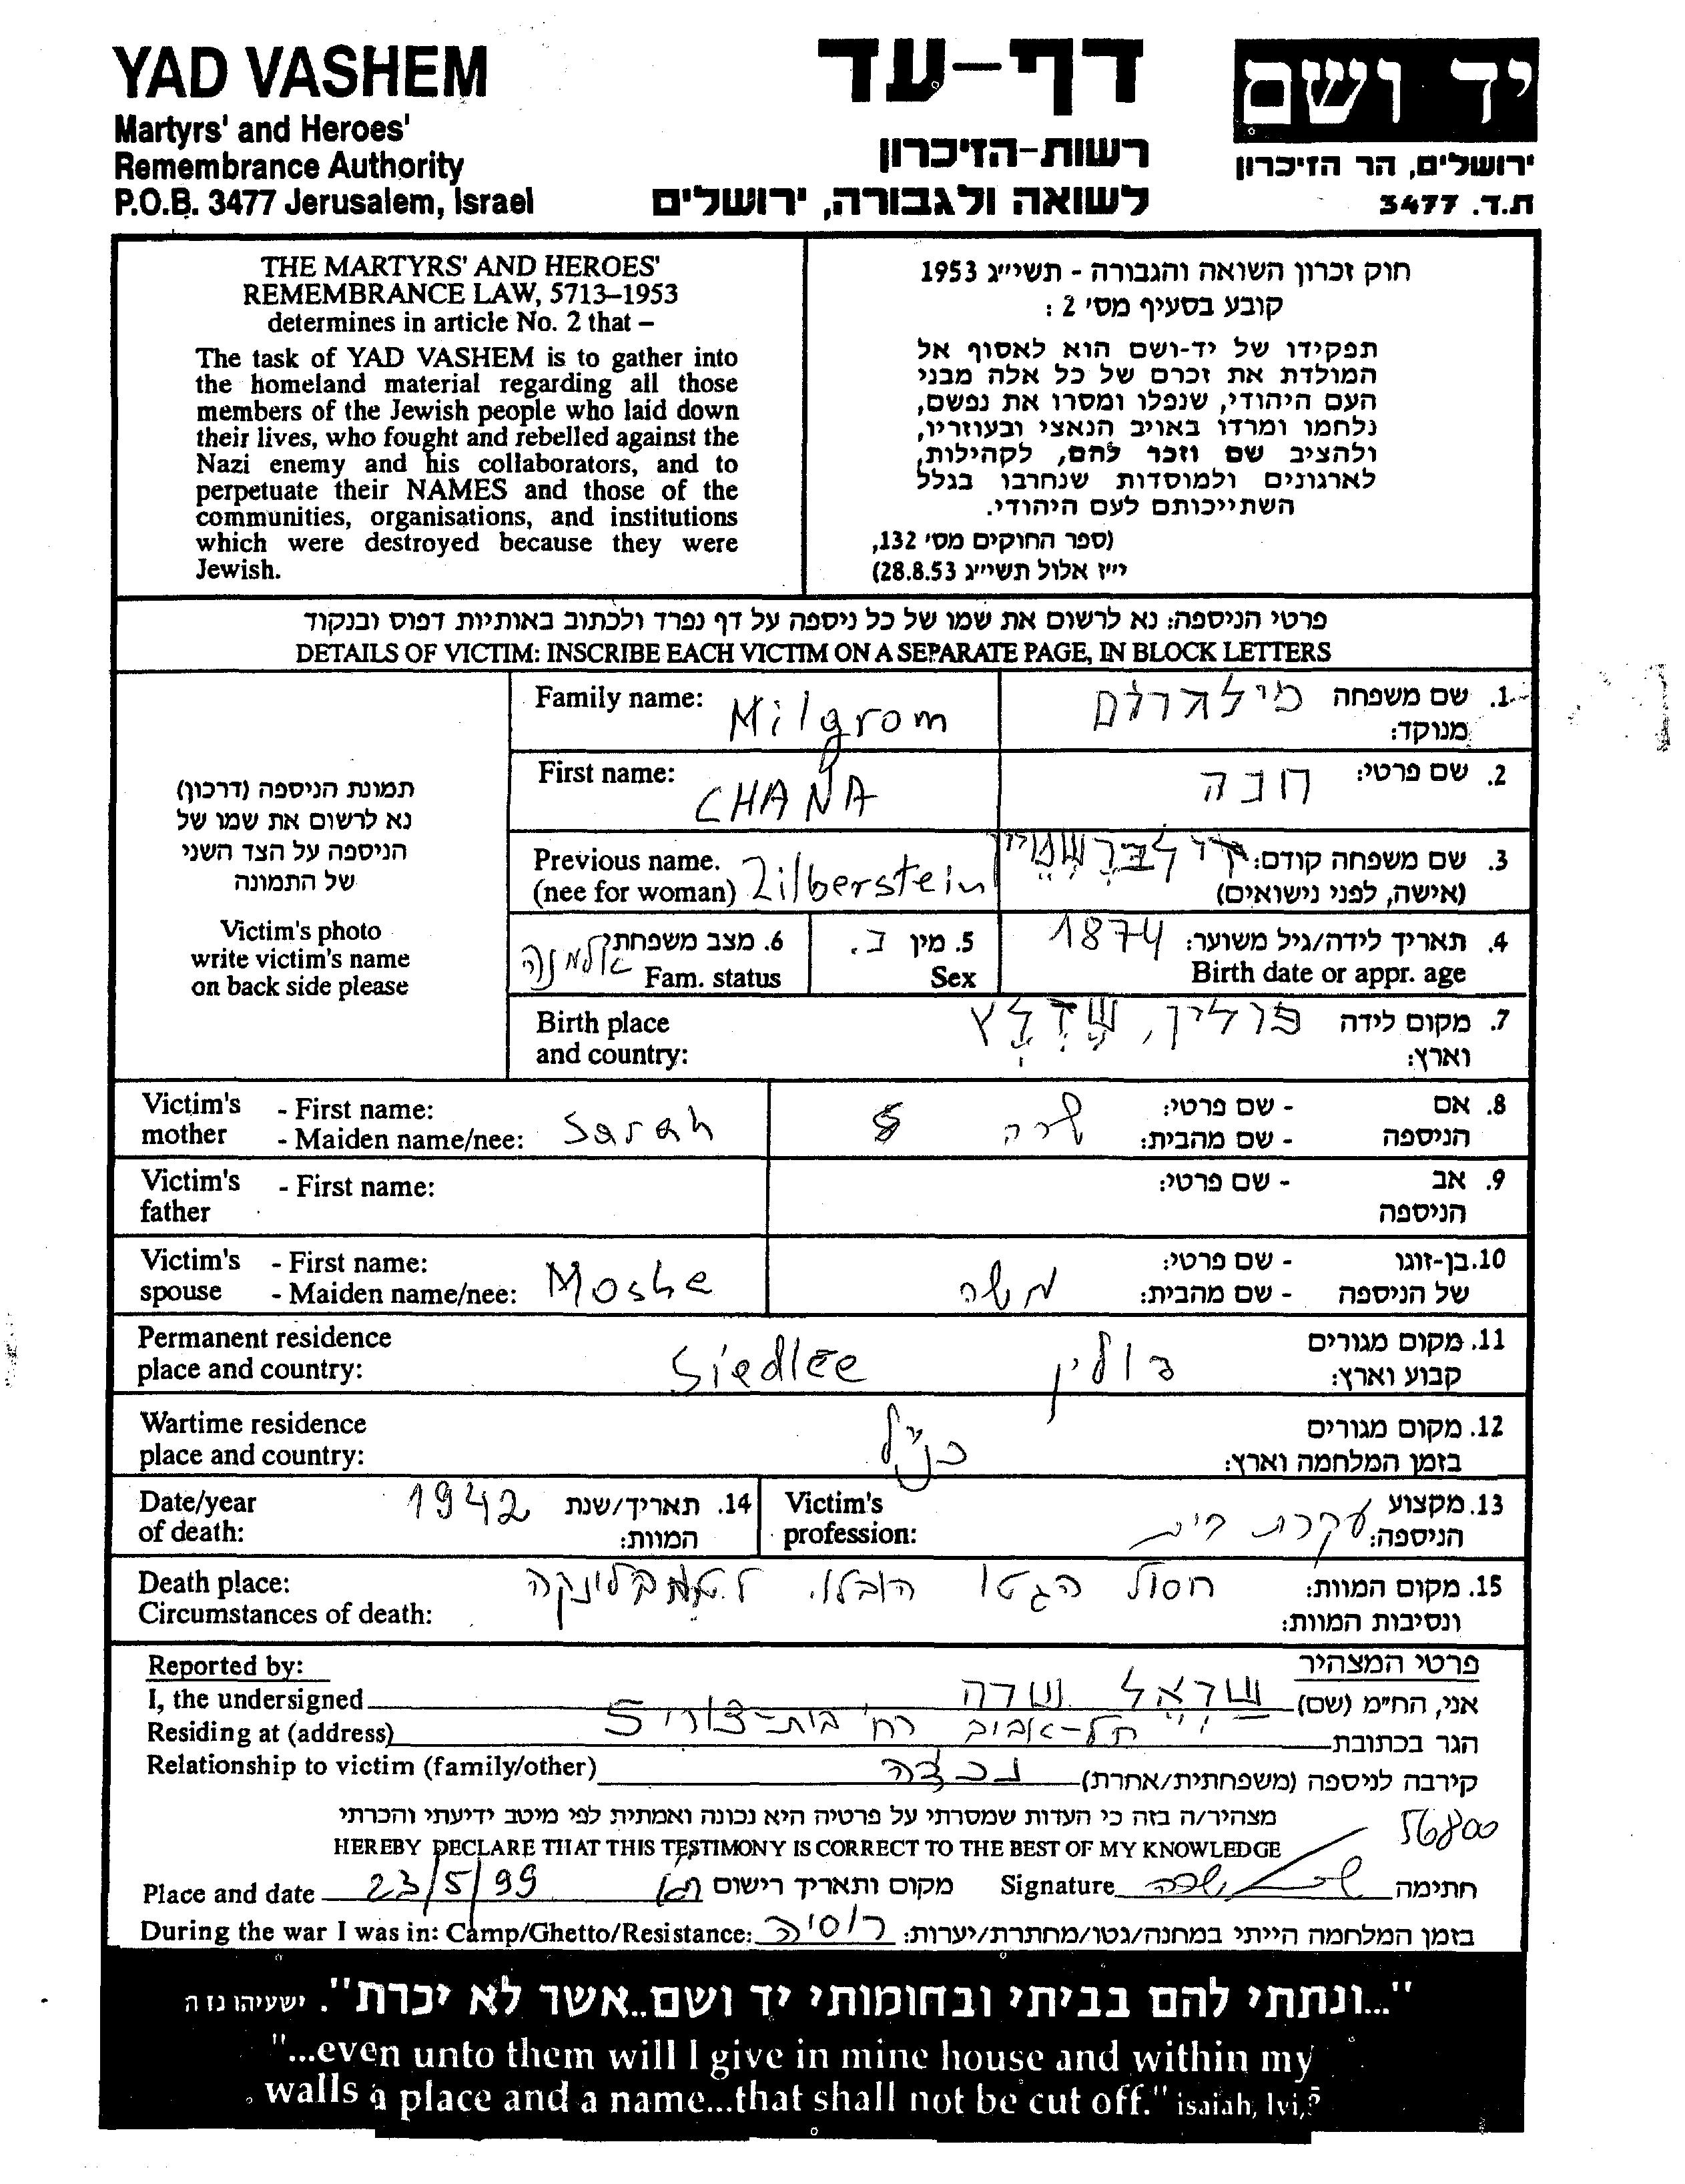 YAD VASHEM
Martyrs' and Heroes'
Remembrance Authority
P.O.B. 3477 Jerusalem, Israel
דף-עד
רשות-הזיכרון
לשואה ולגבורה, ירושלים
יד ושם
ירושלים, הר הזיכרון
ת.ד. 3477
THE MARTYRS' AND HEROES'
REMEMBRANCE LAW, 5713–1953
determines in article No. 2 that –
The task of YAD VASHEM is to gather into
the homeland material regarding all those
members of the Jewish people who laid down
their lives, who fought and rebelled against the
Nazi enemy and his collaborators, and to
perpetuate their NAMES and those of the
communities, organisations, and institutions
which were destroyed because they were
Jewish.
חוק זכרון השואה והגבורה - תשי״ג 1953
קובע בסעיף מס' 2 :
תפקידו של יד-ושם הוא לאסוף אל
המולדת את זכרם של כל אלה מבני
העם היהודי, שנפלו ומסרו את נפשם,
נלחמו ומרדו באויב הנאצי ובעוזריו,
ולהציב שם וזכר להם, לקהילות,
לארגונים ולמוסדות שנחרבו בגלל
השתייכותם לעם היהודי.
(ספר החוקים מס' 132,
י״ז אלול תשי״ג 28.8.53)
פרטי הניספה: נא לרשום את שמו של כל ניספה על דף נפרד ולכתוב באותיות דפוס ובנקוד
DETAILS OF VICTIM: INSCRIBE EACH VICTIM ON A SEPARATE PAGE, IN BLOCK LETTERS
תמונת הניספה (דרכון)
נא לרשום את שמו של
הניספה על הצד השני
של התמונה
Victim's photo
write victim's name
on back side please
Family name: Milgrom
1. שם משפחה מילגרום
מנוקד:
First name: CHANA
2. שם פרטי: חנה
Previous name.
(nee for woman) Zilberstein
3. שם משפחה קודם:
(אישה, לפני נישואים)
4. תאריך לידה/גיל משוער: 1874
Birth date or appr. age
5. מין נ.
Sex
6. מצב משפחתי אלמנה
Fam. status
Birth place
and country:
7. מקום לידה פולין, שדלץ
וארץ:
Victim's - First name:
mother - Maiden name/nee: Sarah
8. אם - שם פרטי: שרה
הניספה - שם מהבית:
Victim's - First name:
father
9. אב - שם פרטי:
הניספה
Victim's - First name:
spouse - Maiden name/nee: Moshe
10. בן-זוגו - שם פרטי: משה
של הניספה - שם מהבית:
Permanent residence
place and country: Siedlce
11. מקום מגורים פולין
קבוע וארץ:
Wartime residence
place and country:
12. מקום מגורים כנ"ל
בזמן המלחמה וארץ:
Date/year
of death: 1942
14. תאריך/שנת
המוות:
Victim's
profession:
13. מקצוע
הניספה: עקרת בית
Death place:
Circumstances of death:
15. מקום המוות: חסול הגטו הובלו. לטרבלינקה
ונסיבות המוות:
Reported by:
פרטי המצהיר
I, the undersigned
אני, הח״מ (שם) ישראל שרה
Residing at (address)
הגר בכתובת תל-אביב רח' בית-צורי 5
Relationship to victim (family/other)
קירבה לניספה (משפחתית/אחרת) נכדה
מצהיר/ה בזה כי העדות שמסרתי על פרטיה היא נכונה ואמתית לפי מיטב ידיעתי והכרתי
HEREBY DECLARE THAT THIS TESTIMONY IS CORRECT TO THE BEST OF MY KNOWLEDGE
56800
Place and date 23/5/99 מקום ותאריך רישום
Signature חתימה
During the war I was in: Camp/Ghetto/Resistance: רוסיה בזמן המלחמה הייתי במחנה/גטו/מחתרת/יערות:
"...ונתתי להם בביתי ובחומותי יד ושם..אשר לא יכרת". ישעיהו נז ה
"...even unto them will I give in mine house and within my
walls a place and a name...that shall not be cut off." isaiah, lvi,5